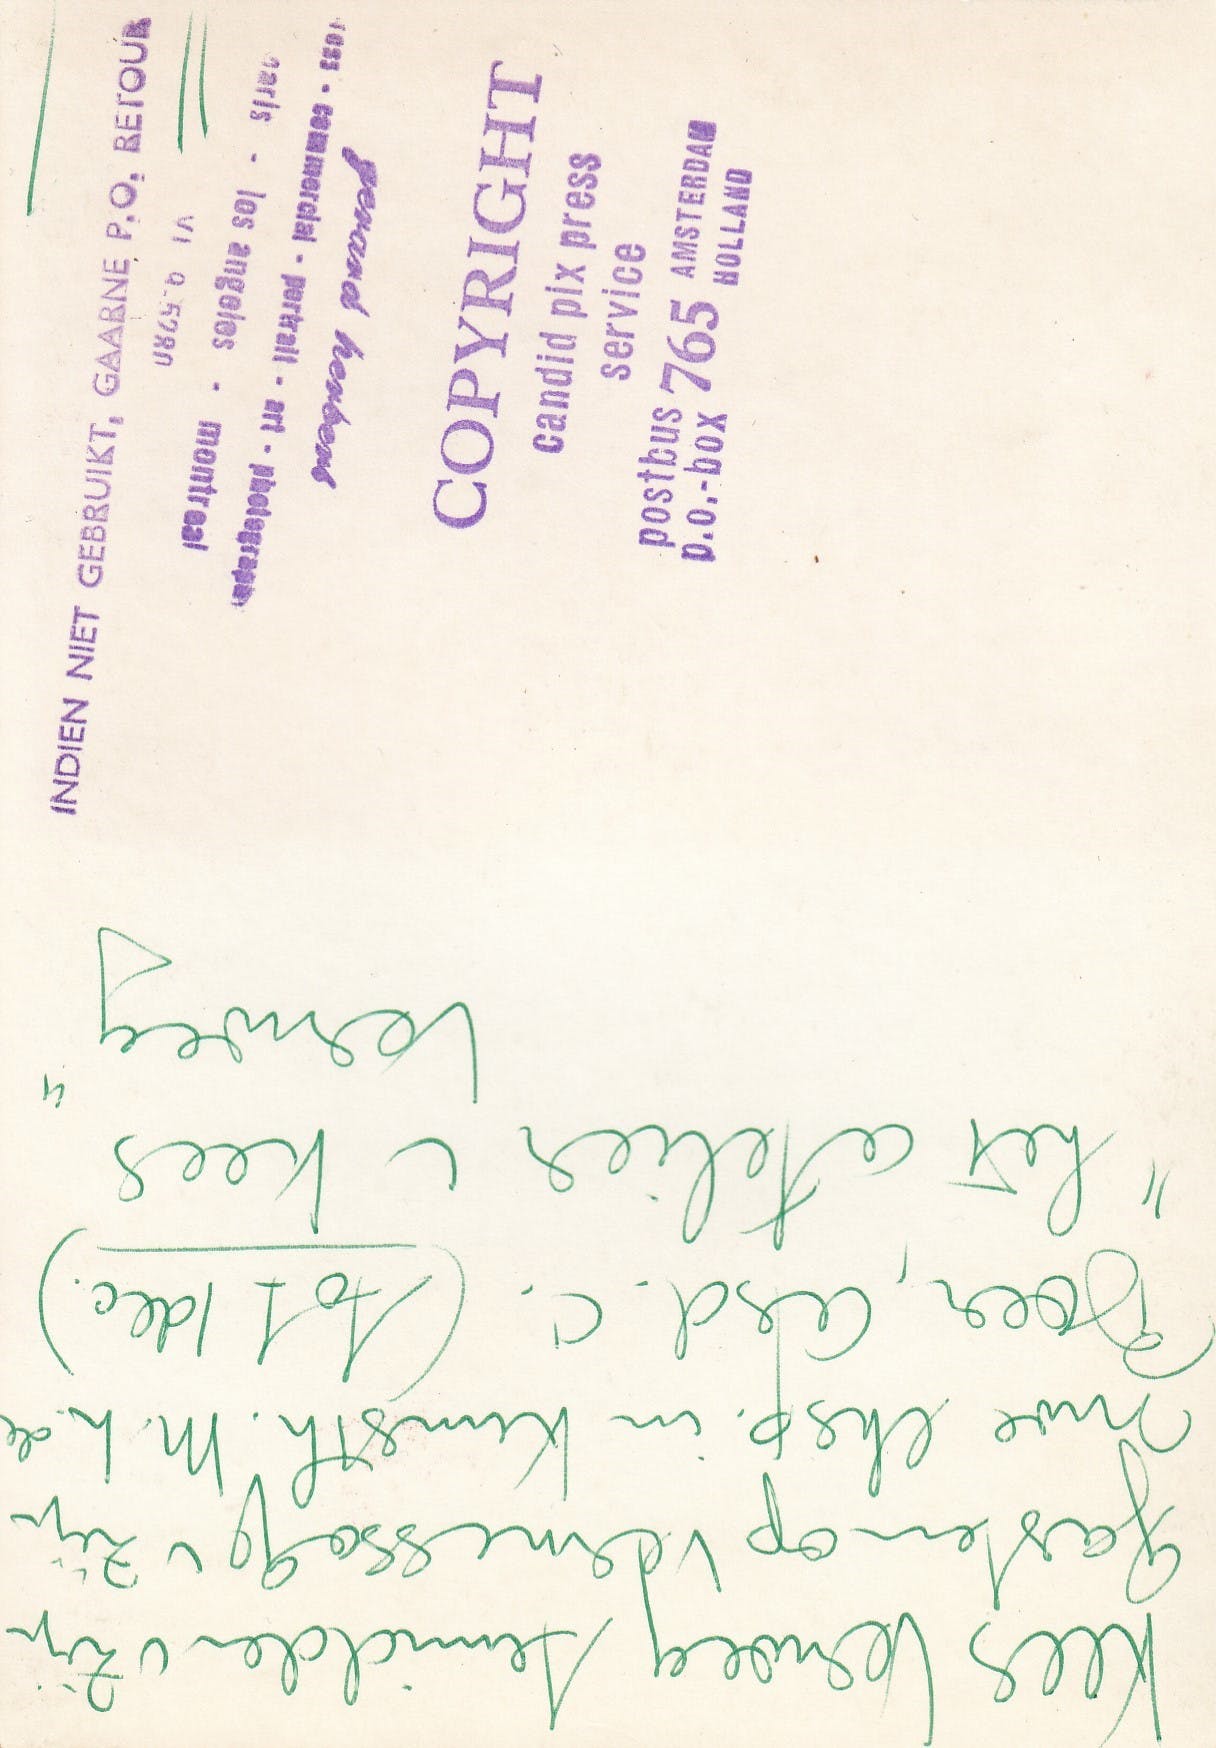 INDIEN NIET GEBRUIKT, GAARNE P.O. RETOUR
gerard
commercial - portrait - art - photography
paris - los angeles - montreal
COPYRIGHT
candid pix press
service
postbus 765 AMSTERDAM
p.o.-box HOLLAND
Kees Verwey temidden v zijn
gasten op vernissage v zijn
nwe eksp. in Kunsth. M.L. de
Boer, Asd. C. (tot 1 dec.)
"het atelier v Kees
Verwey"